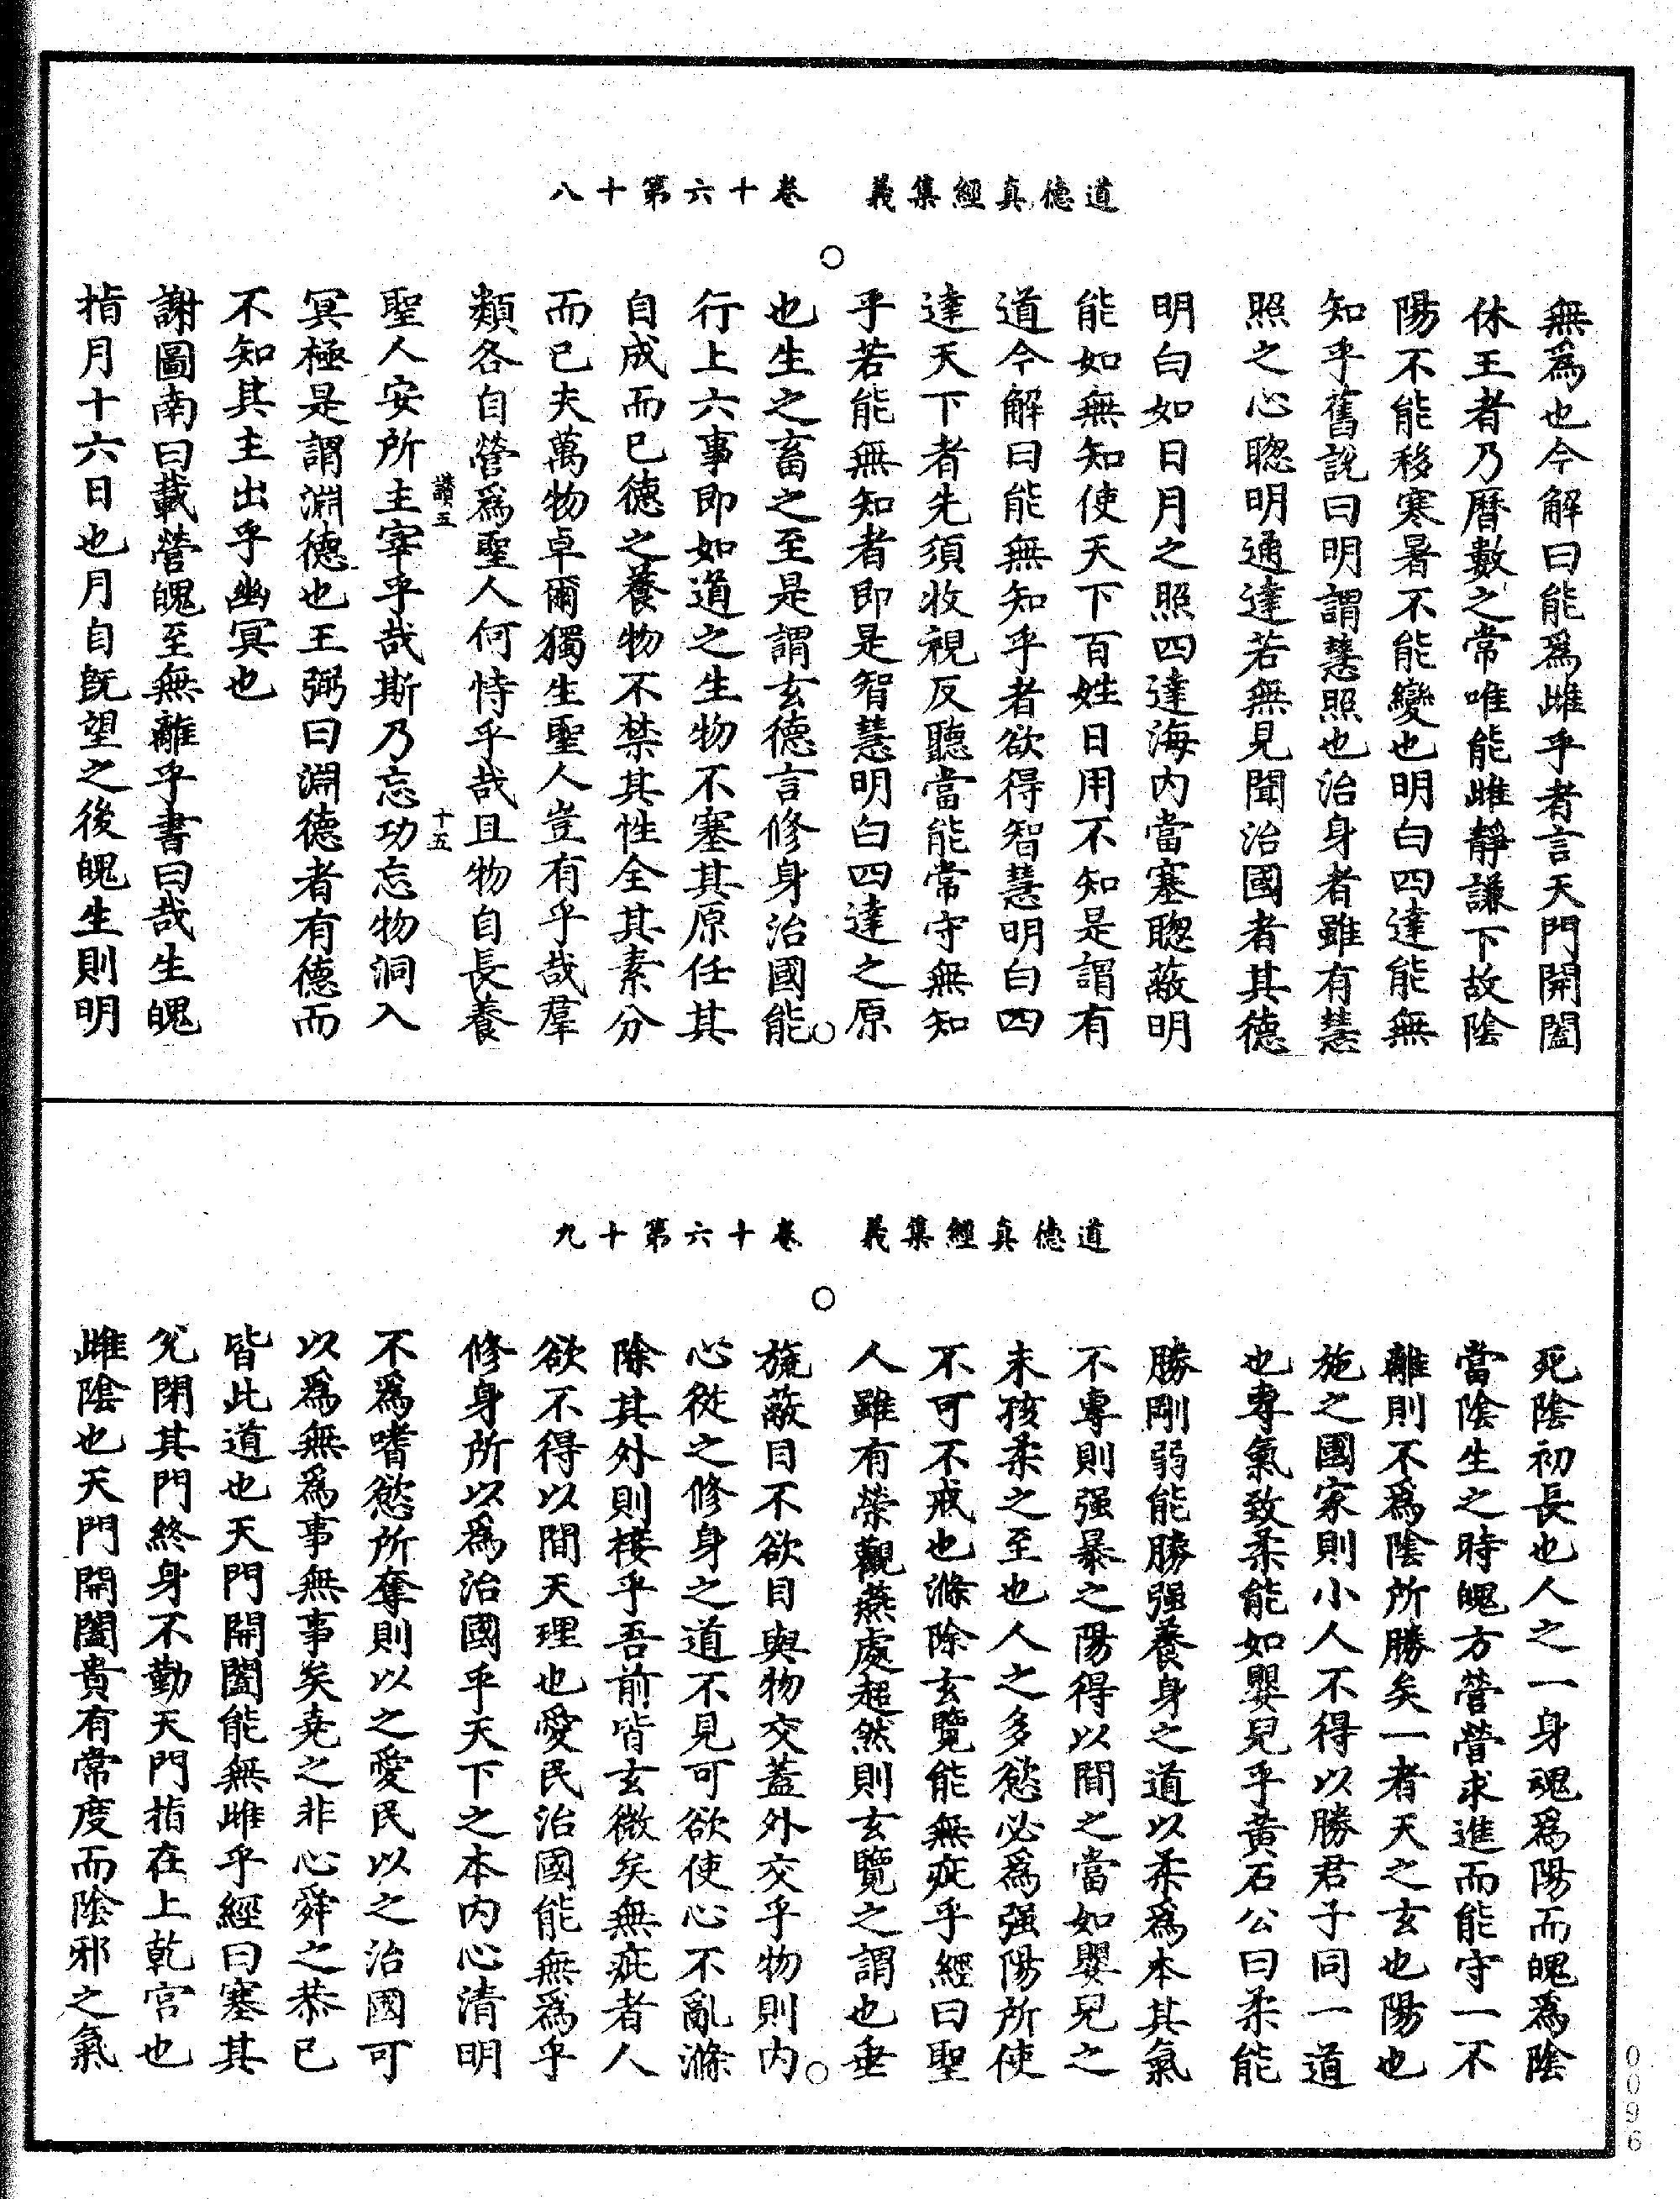 道德真經集義　卷十六第十八
無爲也今解曰能爲雌乎者言天門開闔
休王者乃曆數之常唯能雌靜謙下故陰
陽不能移寒暑不能變也明白四達能無
知乎舊說曰明謂慧照也治身者雖有慧
照之心聰明通達若無見聞治國者其德
明白如日月之照四達海内當塞聰蔽明
能如無知使天下百姓日用不知是謂有
道今解曰能無知乎者欲得智慧明白四
達天下者先須收視反聽當能常守無知
乎若能無知者即是智慧明白四達之原
也生之畜之至是謂玄德言修身治國能
行上六事即如道之生物不塞其原任其
自成而已德之養物不禁其性全其素分
而已夫萬物卓爾獨生聖人豈有乎哉羣
類各自營爲聖人何恃乎哉且物自長養
讃五　十五
聖人安所主宰乎哉斯乃忘功忘物洞入
冥極是謂淵德也王弼曰淵德者有德而
不知其主出乎幽冥也
謝圖南曰載營魄至無離乎書曰哉生魄
指月十六日也月自旣望之後魄生則明
道德真經集義　卷十六第十九
死陰初長也人之一身魂爲陽而魄爲陰
當陰生之時魄方營營求進而能守一不
離則不爲陰所勝矣一者天之玄也陽也
施之國家則小人不得以勝君子同一道
也專氣致柔能如嬰兒乎黃石公曰柔能
勝剛弱能勝强養身之道以柔爲本其氣
不專則强暴之陽得以間之當如嬰兒之
未孩柔之至也人之多慾必爲强陽所使
不可不戒也滌除玄覽能無疵乎經曰聖
人雖有榮觀燕處超然則玄覽之謂也垂
旒蔽目不欲目與物交蓋外交乎物則内
心從之修身之道不見可欲使心不亂滌
除其外則接乎吾前皆玄微矣無疵者人
欲不得以間天理也愛民治國能無爲乎
修身所以爲治國乎天下之本内心清明
不爲嗜慾所奪則以之愛民以之治國可
以爲無爲事無事矣堯之非心舜之恭已
皆此道也天門開闔能無雌乎經曰塞其
兌閉其門終身不勤天門指在上乾宫也
雌陰也天門開闔貴有常度而陰邪之氣
0096